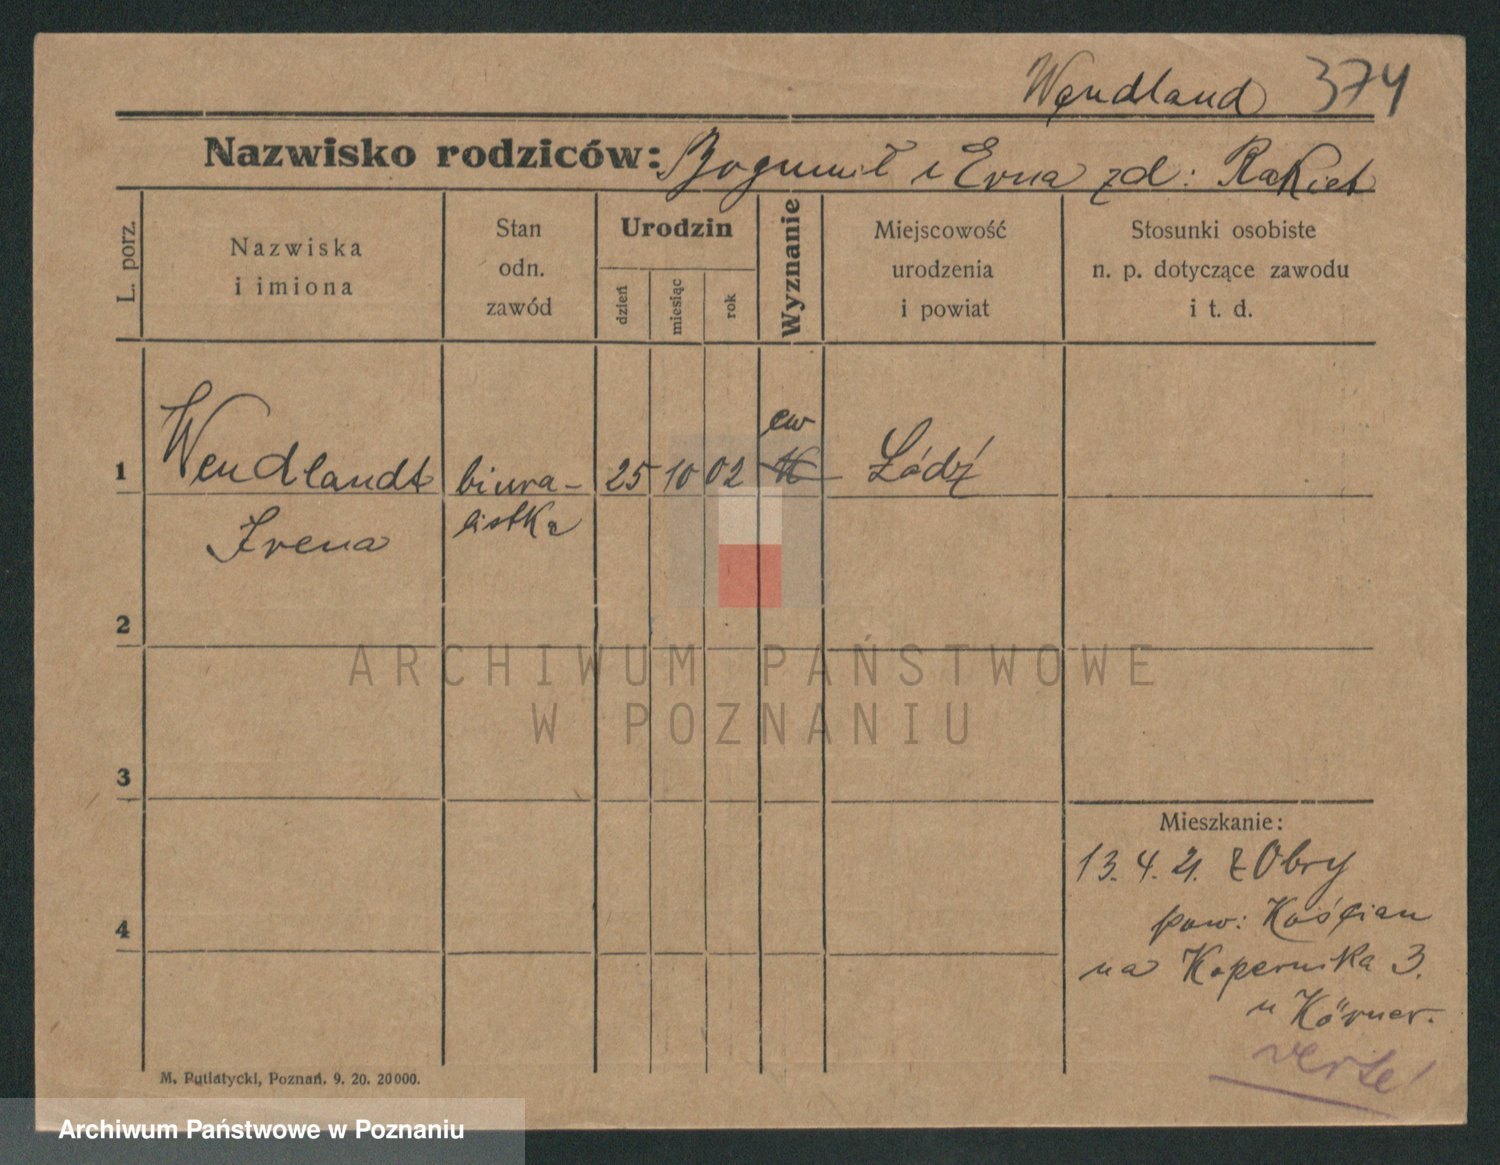 Wendland 374
Nazwisko rodziców: Bogumił i Erna zd: Rakiet
L. porz.
Nazwiska
i imiona
Stan
odn.
zawód
Urodzin
dzień
miesiąc
rok
Wyznanie
Miejscowość
urodzenia
i powiat
Stosunki osobiste
n. p. dotyczące zawodu
i t. d.
ew
1 Wendlandt biura- 25 10 02 K Łódź
Irena listka
2
ARCHIWUM PAŃSTWOWE
W POZNANIU
3
Mieszkanie:
13. 4. 21. z Obry
4 pow: Kościan
na Kopernika 3.
u Körner.
verte!
M. Putiatycki, Poznań. 9. 20. 20000.
Archiwum Państwowe w Poznaniu